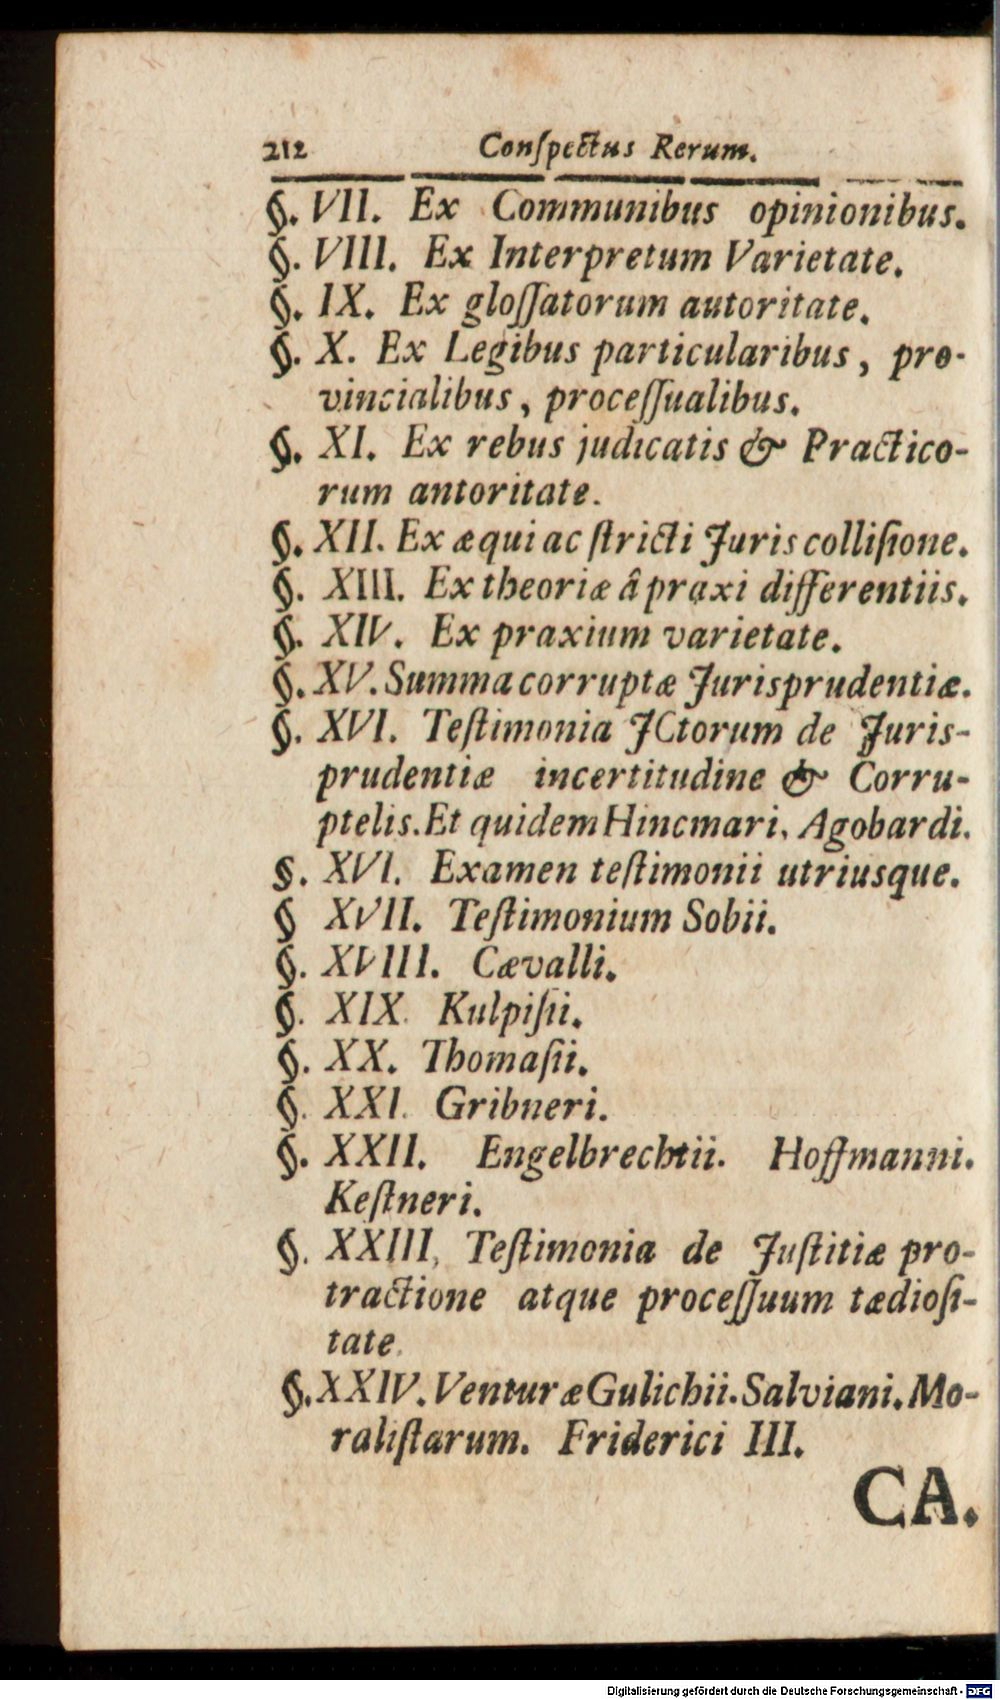 212 Conſpectus Rerum.
§. VII. Ex Communibus opinionibus.
§. VIII. Ex Interpretum Varietate.
§. IX. Ex gloſſatorum autoritate.
§. X. Ex Legibus particularibus, pro-
vincialibus, proceſſualibus.
§. XI. Ex rebus judicatis & Practico-
rum antoritate.
§. XII. Ex æqui ac ſtricti Juris colliſione.
§. XIII. Ex theoriæ â praxi differentiis.
§. XIV. Ex praxium varietate.
§. XV. Summa corruptæ Jurisprudentiæ.
§. XVI. Teſtimonia JCtorum de Juris-
prudentiæ incertitudine & Corru-
ptelis. Et quidem Hincmari, Agobardi.
§. XVI. Examen teſtimonii utriusque.
§ XVII. Teſtimonium Sobii.
§. XVIII. Cævalli.
§. XIX. Kulpiſii.
§. XX. Thomaſii.
§. XXI. Gribneri.
§. XXII. Engelbrechtii. Hoffmanni.
Keſtneri.
§. XXIII, Teſtimonia de Juſtitiæ pro-
tractione atque proceſſuum tædioſi-
tate.
§. XXIV. Venturæ Gulichii. Salviani. Mo-
raliſtarum. Friderici III.
CA.
Digitalisierung gefördert durch die Deutsche Forschungsgemeinschaft - DFG